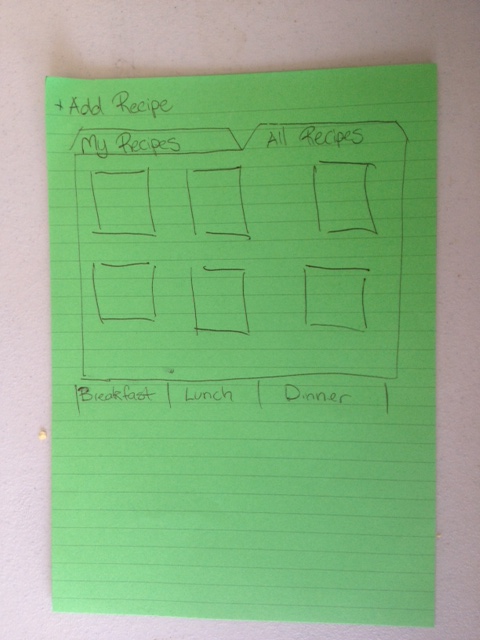 + Add Recipe
My Recipes All Recipes
Breakfast | Lunch | Dinner |